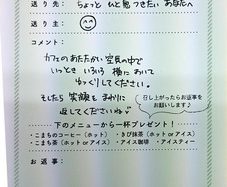 送り先： ちょっと ひと息つきたい あなたへ
送り主：
コメント：
カフェのあたたかい空気の中で
いっとき いろいろ 横において
ゆっくりしてください。
そしたら 笑顔を まわりに
返してくださいね
召し上がったらお返事を
お願いします♪
下のメニューから一杯プレゼント！
・こまものコーヒー（ホット）・きび抹茶（ホット or アイス）
・こまち茶（ホット or アイス）・アイス珈琲 ・アイスティー
お返事：